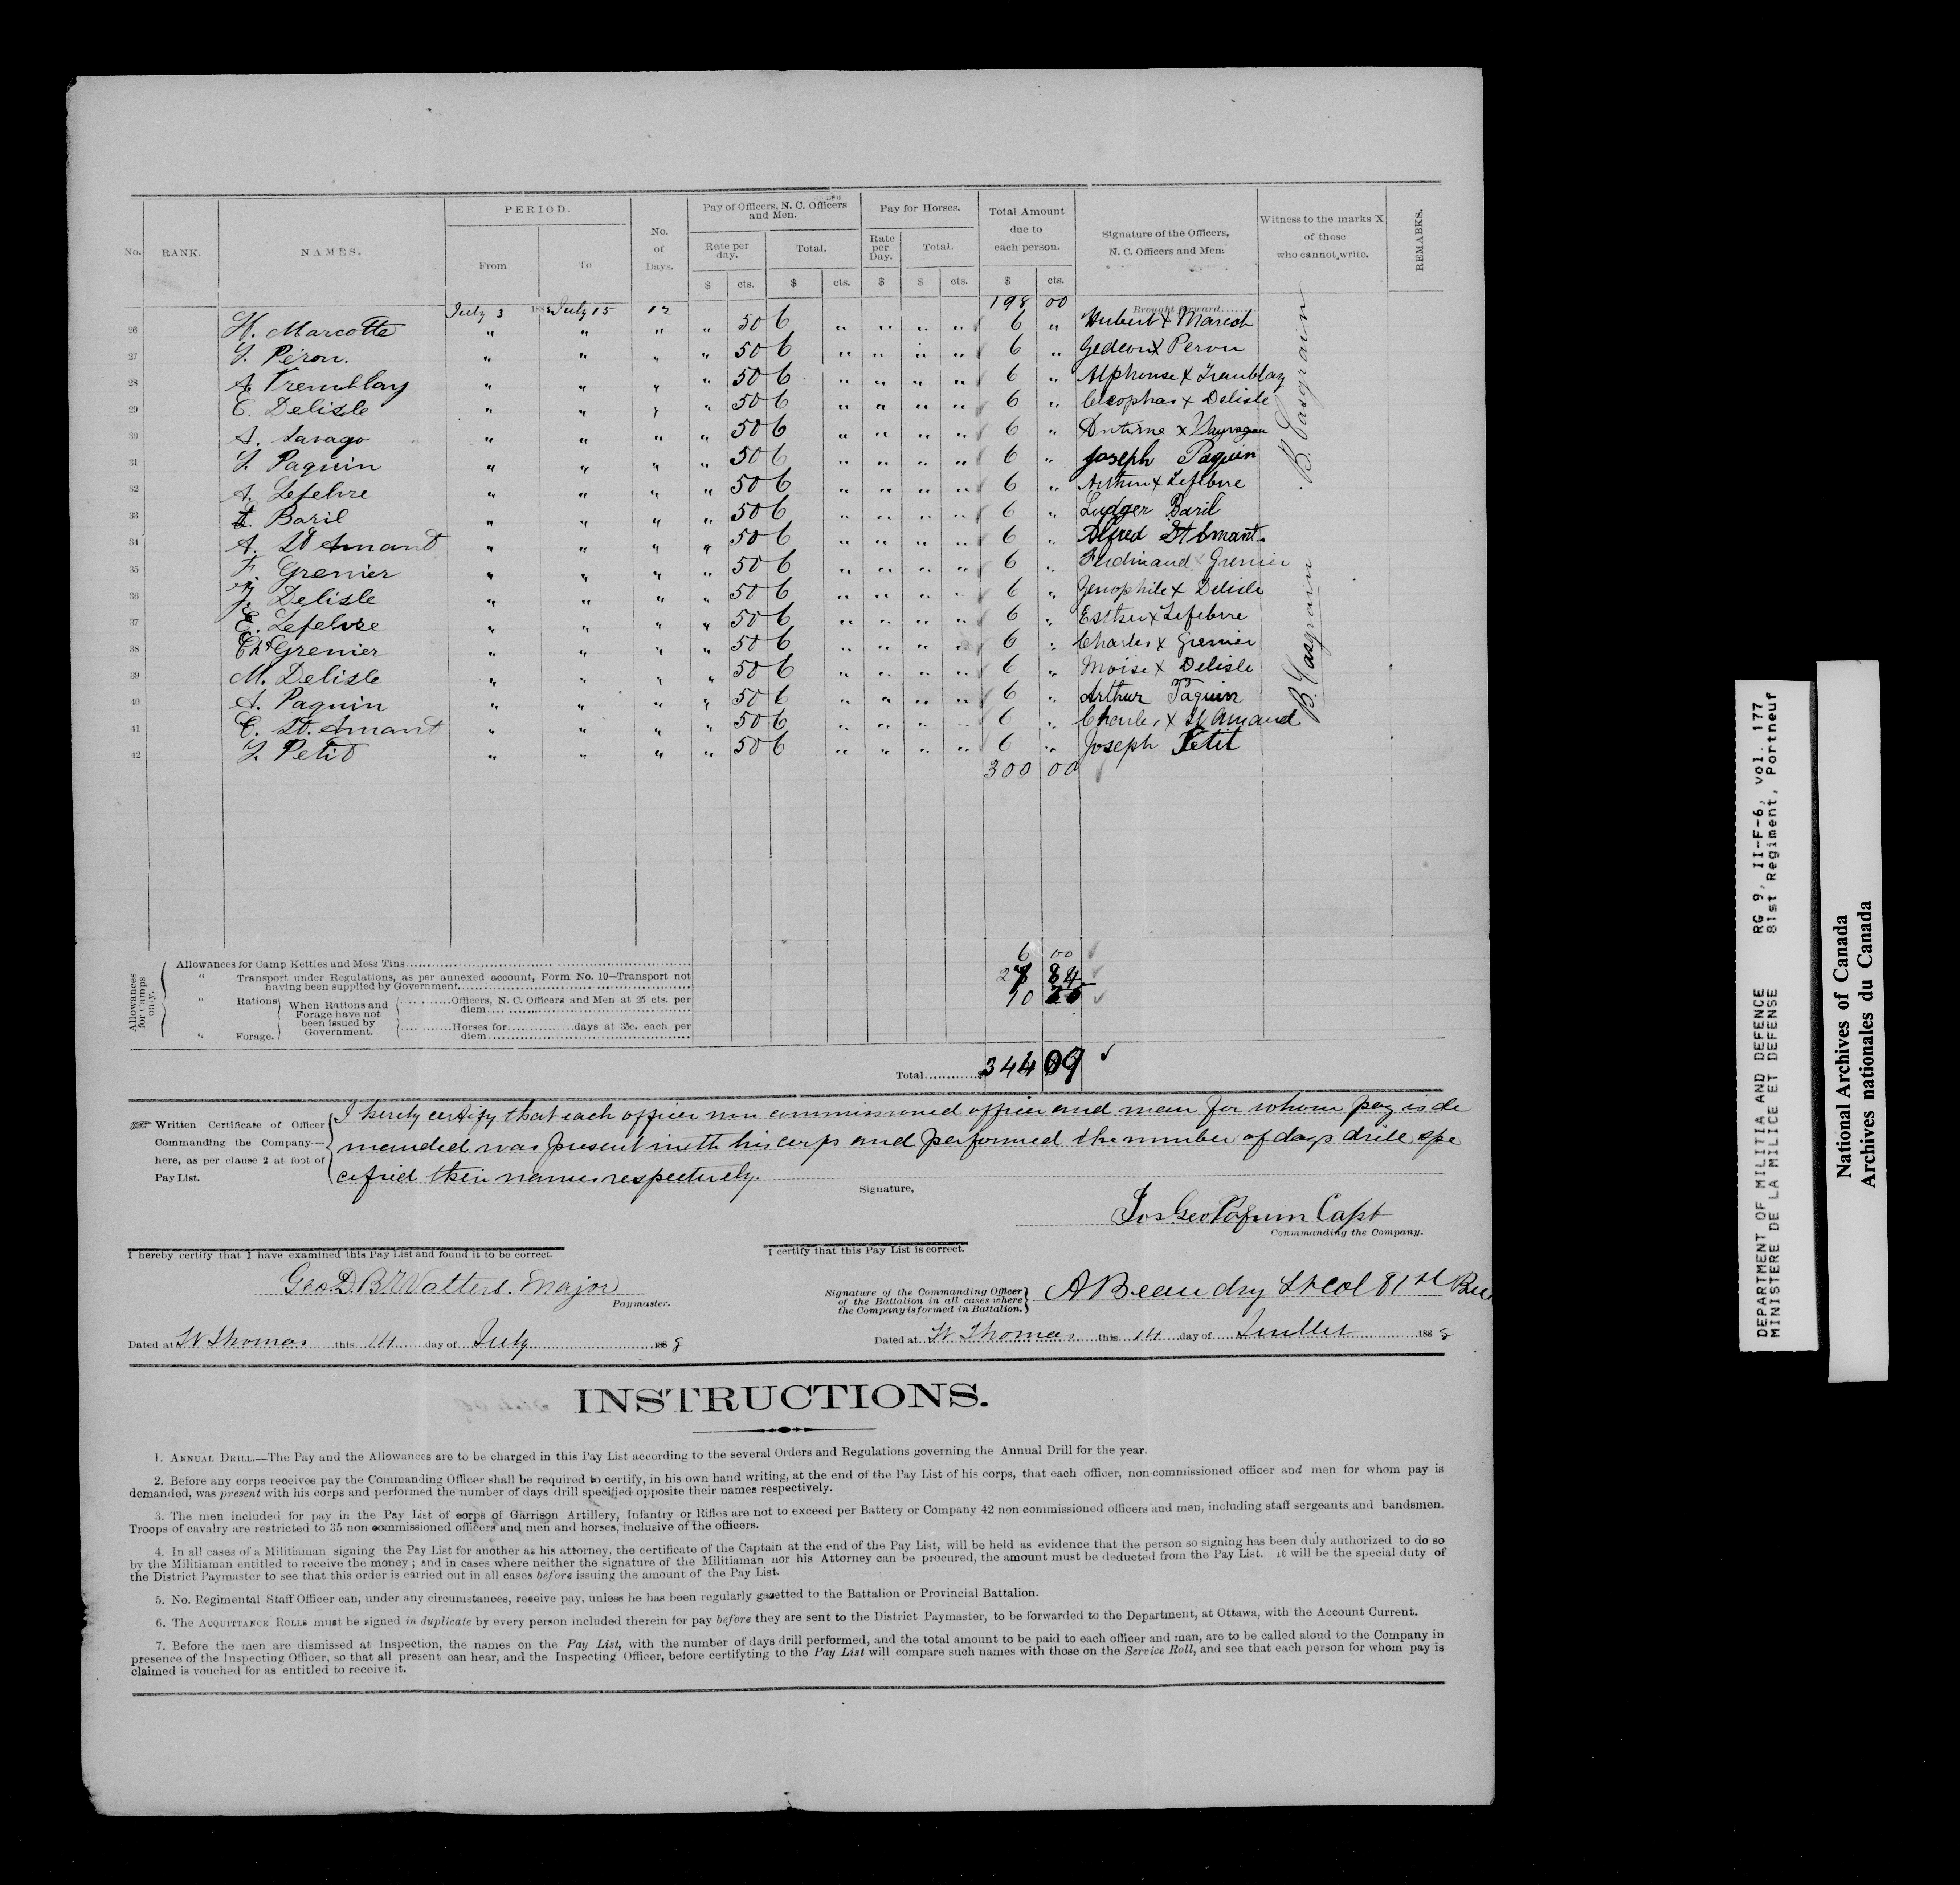 No. RANK. NAMES. PERIOD. From To No. of Days. Pay of Officers, N. C. Officers and Men. Rate per day. $ cts. Total. $ cts. Pay for Horses. Rate per Day. $ Total. $ cts. Total Amount due to each person. $ cts. Signature of the Officers, N. C. Officers and Men. Witness to the marks X of those who cannot write. REMARKS.
July 3 188 July 15 12 198 00 Brought forward......
26 H. Marcotte " " " " 50 6 " " " " 6 " Hubert X Marcot
27 G. Péron. " " " " 50 6 " " " " 6 " Gedeon X Peron
28 A. Tremblay " " " " 50 6 " " " " 6 " Alphonse X Tremblay
29 C. Delisle " " " " 50 6 " " " " 6 " Cleophas X Delisle
30 A. Savago " " " " 50 6 " " " " 6 " Antoine X
31 J. Paquin " " " " 50 6 " " " " 6 " Joseph Paquin
32 A. Lefebvre " " " " 50 6 " " " " 6 " Arthur X Lefebvre
33 L. Baril " " " " 50 6 " " " " 6 " Ludger Baril
34 A. St Amant " " " " 50 6 " " " " 6 " Alfred St Amant.
35 F. Grenier " " " " 50 6 " " " " 6 " Ferdinand X Grenier
36 Delisle " " " " 50 6 " " " " 6 " Zenophile X Delisle
37 E. Lefebvre " " " " 50 6 " " " " 6 " X Lefebvre
38 Chs Grenier " " " " 50 6 " " " " 6 " Charles X Grenier
39 M. Delisle " " " " 50 6 " " " " 6 " Moise X Delisle
40 A. Paquin " " " " 50 6 " " " " 6 " Arthur Paquin
41 C. St. Amant " " " " 50 6 " " " " 6 " Charles X St Amand
42 J. Petit " " " " 50 6 " " " " 6 " Joseph Petit
300 00
B. Casgrain
B. Casgrain
Allowances for Camps only.
Allowances for Camp Kettles and Mess Tins........ 6 00
" Transport under Regulations, as per annexed account, Form No. 10—Transport not
having been supplied by Government........ 84
" Rations When Rations and Forage have not been issued by Government. ........Officers, N. C. Officers and Men at 25 cts. per diem........ 10
" Forage. ........Horses for........days at 35c. each per diem........
Total........ 344 09
Written Certificate of Officer Commanding the Company—here, as per clause 2 at foot of Pay List.
I hereby certify that each officer non commissioned officer and man for whom pay is de
manded was present with his corps and performed the number of days drill spe
cified their names respectively.
Signature,
Jos Geo Paquin Capt
Commanding the Company.
I hereby certify that I have examined this Pay List and found it to be correct.
Geo. D. B. Watters. Major
Paymaster.
I certify that this Pay List is correct.
Signature of the Commanding Officer of the Battalion in all cases where the Company is formed in Battalion.
A Beaudry Lt Col 81st
Dated at St Thomas this 14 day of July 188 8
Dated at St Thomas this 14 day of Juillet 188 8
INSTRUCTIONS.
1. ANNUAL DRILL.—The Pay and the Allowances are to be charged in this Pay List according to the several Orders and Regulations governing the Annual Drill for the year.
2. Before any corps receives pay the Commanding Officer shall be required to certify, in his own hand writing, at the end of the Pay List of his corps, that each officer, non-commissioned officer and men for whom pay is
demanded, was present with his corps and performed the number of days drill specified opposite their names respectively.
3. The men included for pay in the Pay List of corps of Garrison Artillery, Infantry or Rifles are not to exceed per Battery or Company 42 non commissioned officers and men, including staff sergeants and bandsmen.
Troops of cavalry are restricted to 35 non commissioned officers and men and horses, inclusive of the officers.
4. In all cases of a Militiaman signing the Pay List for another as his attorney, the certificate of the Captain at the end of the Pay List, will be held as evidence that the person so signing has been duly authorized to do so
by the Militiaman entitled to receive the money ; and in cases where neither the signature of the Militiaman nor his Attorney can be procured, the amount must be deducted from the Pay List. it will be the special duty of
the District Paymaster to see that this order is carried out in all cases before issuing the amount of the Pay List.
5. No. Regimental Staff Officer can, under any circumstances, receive pay, unless he has been regularly gazetted to the Battalion or Provincial Battalion.
6. The ACQUITTANCE ROLLS must be signed in duplicate by every person included therein for pay before they are sent to the District Paymaster, to be forwarded to the Department, at Ottawa, with the Account Current.
7. Before the men are dismissed at Inspection, the names on the Pay List, with the number of days drill performed, and the total amount to be paid to each officer and man, are to be called aloud to the Company in
presence of the Inspecting Officer, so that all present can hear, and the Inspecting Officer, before certifyting to the Pay List will compare such names with those on the Service Roll, and see that each person for whom pay is
claimed is vouched for as entitled to receive it.
DEPARTMENT OF MILITIA AND DEFENCE RG 9, II-F-6, vol. 177
MINISTERE DE LA MILICE ET DEFENSE 81st Regiment, Portneuf
National Archives of Canada
Archives nationales du Canada